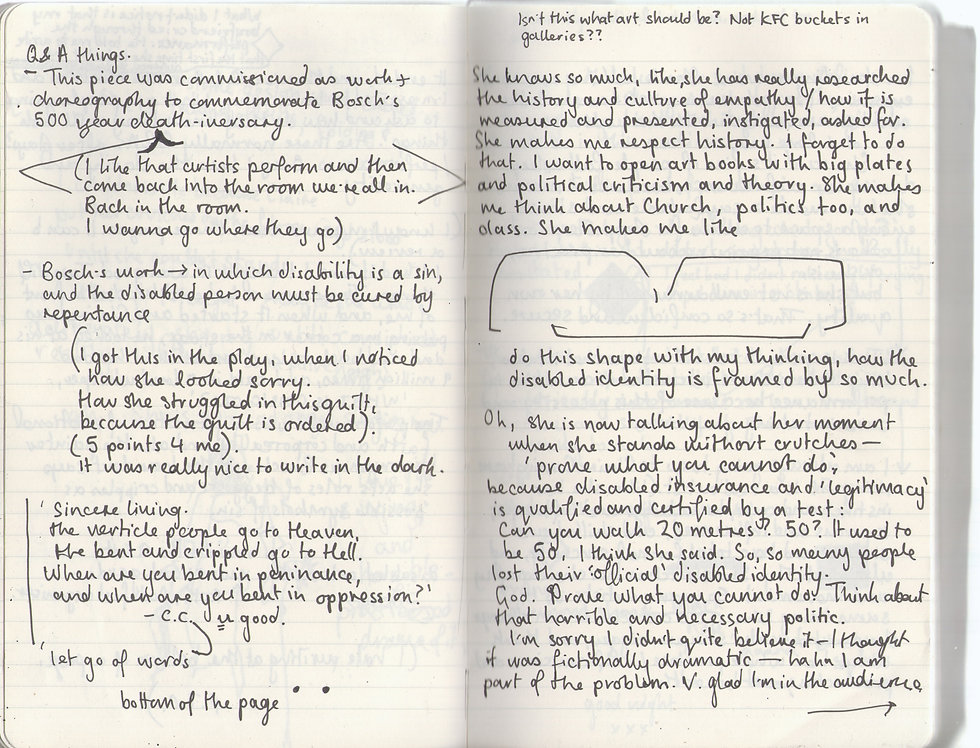 Q&A things.
- This piece was commissioned as work +
choreography to commemorate Bosch's
500 year death-iversary.
(I like that artists perform and then
come back into the room we're all in.
Back in the room.
I wanna go where they go)
- Bosch's work → in which disability is a sin,
and the disabled person must be cured by
repentance
(I got this in the play, when I noticed
how she looked sorry.
How she struggled in this guilt,
because the guilt is ordered).
(5 points 4 me).
It was really nice to write in the dark.
'Sincere lining.
The verticle people go to Heaven,
the bent and crippled go to Hell.
When are you bent in peninance,
and when are you bent in oppression?'
- C.C. u good.
'let go of words'
bottom of the page
Isn't this what art should be? Not KFC buckets in
galleries??
She knows so much, like, she has really researched
the history and culture of empathy / how it is
measured and presented, instigated, asked for.
She makes me respect history. I forget to do
that. I want to open art books with big plates
and political criticism and theory. She makes
me think about Church, politics too, and
class. She makes me like
do this shape with my thinking, how the
disabled identity is framed by so much.
Oh, she is now talking about her moment
when she stands without crutches -
'prove what you cannot do',
because disabled insurance and 'legitimacy'
is qualified and certified by a test:
Can you walk 20 metres? 50? It used to
be 50, I think she said. So, so many people
lost their 'official' disabled identity.
God! Prove what you cannot do! Think about
that horrible and necessary politic.
I'm sorry I didn't quite believe it - I thought
it was fictionally dramatic - haha I am
part of the problem. V. glad I'm in the audience